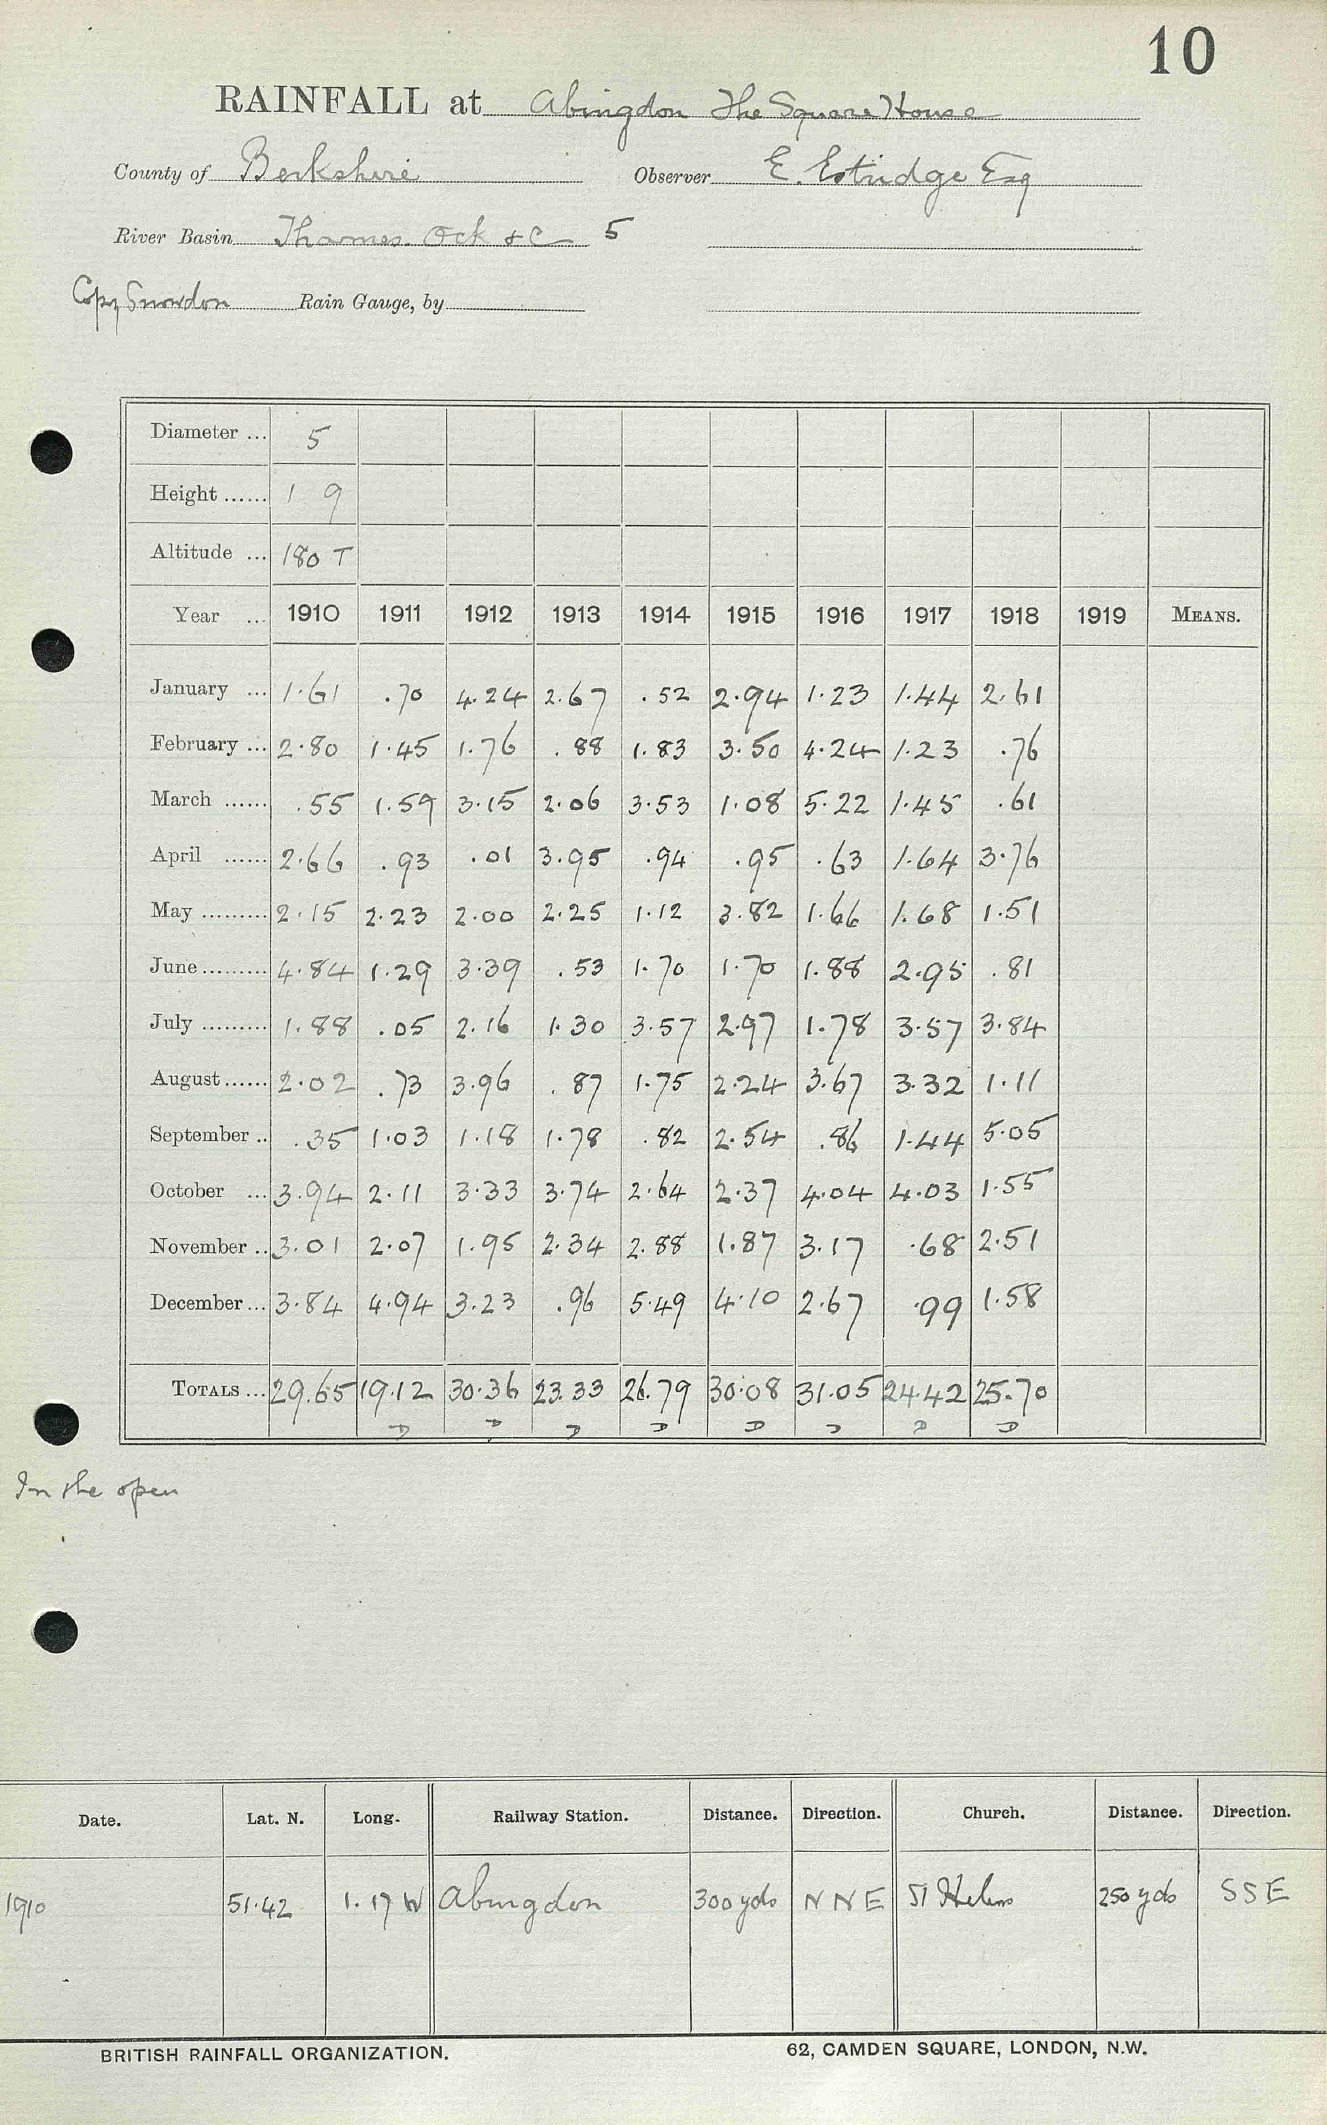 10
RAINFALL at Abingdon The Square House
County of Berkshire Observer E. Estridge Esq
River Basin Thames. Ock &c 5
Copy Snowdon Rain Gauge, by
Diameter ... 5
Height ...... 1 9
Altitude ... 180 T
Year ... 1910 1911 1912 1913 1914 1915 1916 1917 1918 1919 MEANS.
January ... 1.61 .70 4.24 2.67 .52 2.94 1.23 1.44 2.61
February ... 2.80 1.45 1.76 .88 1.83 3.50 4.24 1.23 .76
March ...... .55 1.59 3.15 2.06 3.53 1.08 5.22 1.45 .61
April ...... 2.66 .93 .01 3.95 .94 .95 .63 1.64 3.76
May ......... 2.15 2.23 2.00 2.25 1.12 3.82 1.66 1.68 1.51
June ......... 4.84 1.29 3.39 .53 1.70 1.70 1.88 2.95 .81
July ......... 1.88 .05 2.16 1.30 3.57 2.97 1.78 3.57 3.84
August ...... 2.02 .73 3.96 .87 1.75 2.24 3.67 3.32 1.11
September .. .35 1.03 1.18 1.78 .82 2.54 .86 1.44 5.05
October ... 3.94 2.11 3.33 3.74 2.64 2.37 4.04 4.03 1.55
November .. 3.01 2.07 1.95 2.34 2.88 1.87 3.17 .68 2.51
December ... 3.84 4.94 3.23 .96 5.49 4.10 2.67 .99 1.58
TOTALS ... 29.65 19.12 30.36 23.33 26.79 30.08 31.05 24.42 25.70
D D D D D D D D
In the open
Date. Lat. N. Long. Railway Station. Distance. Direction. Church. Distance. Direction.
1910 51.42 1.17 W Abingdon 300 yds N N E St Helens 250 yds S S E
BRITISH RAINFALL ORGANIZATION. 62, CAMDEN SQUARE, LONDON, N.W.